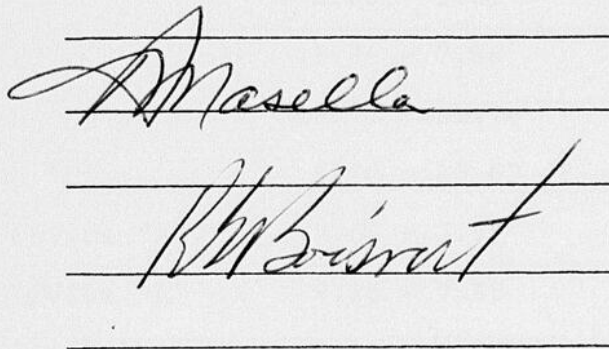 Masella
Boisvert